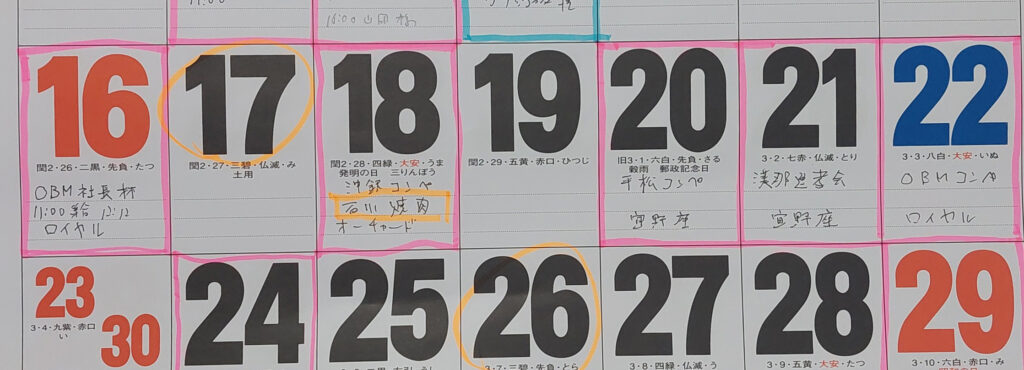 11:00
16:00
16
閏2・26・二黒・先負・たつ
OBM社長杯
11:00
ロイヤル
17
閏2・27・三碧・仏滅・み
土用
18
閏2・28・四緑・大安・うま
発明の日 三りんぼう
沖銀コンペ
石川 焼肉
オーチャード
19
閏2・29・五黄・赤口・ひつじ
20
旧3・1・六白・先負・さる
穀雨 郵政記念日
平松コンペ
宜野座
21
3・2・七赤・仏滅・とり
宜野座
22
3・3・八白・大安・いぬ
OBMコンペ
ロイヤル
23
3・4・九紫・赤口
い
30
24
25
26
3・7・三碧・先負・とら
27
3・8・四緑・仏滅・う
28
3・9・五黄・大安・たつ
29
3・10・六白・赤口・み